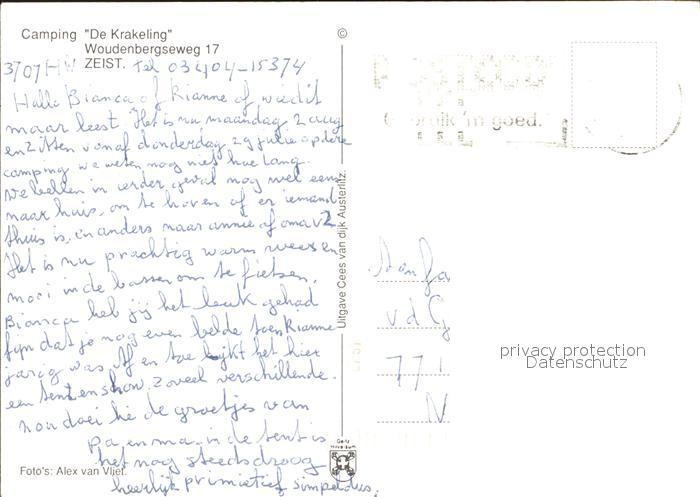 Camping "De Krakeling"
Woudenbergseweg 17
3707 HW ZEIST. tel 03404-15374
Hallo Bianca of Rianne of wie dit
maar leest. Het is nu maandag 2 aug
en zitten vanaf donderdag 29 julie op deze
camping we weten nog niet hoe lang.
we bellen in ieder geval nog wel eens
naar huis, om te horen of er iemand
thuis is, en anders naar annie of oma v Z
Het is nu prachtig warm weer en
mooi in de bossen om te fietsen.
Bianca heb jij het leuk gehad
fijn dat je nog even belde toen Rianne
jarig was. Af en toe lijkt het hier
een tentenshow. zoveel verschillende.
nou doei hé de groetjes van
pa en ma. in de tent is
het nog steeds droog
heerlijk primietief simpel dus.
Foto's: Alex van Vliet.
©
Uitgave Cees van dijk Austerlitz.
'm goed.
v d G
77
N
privacy protection
Datenschutz